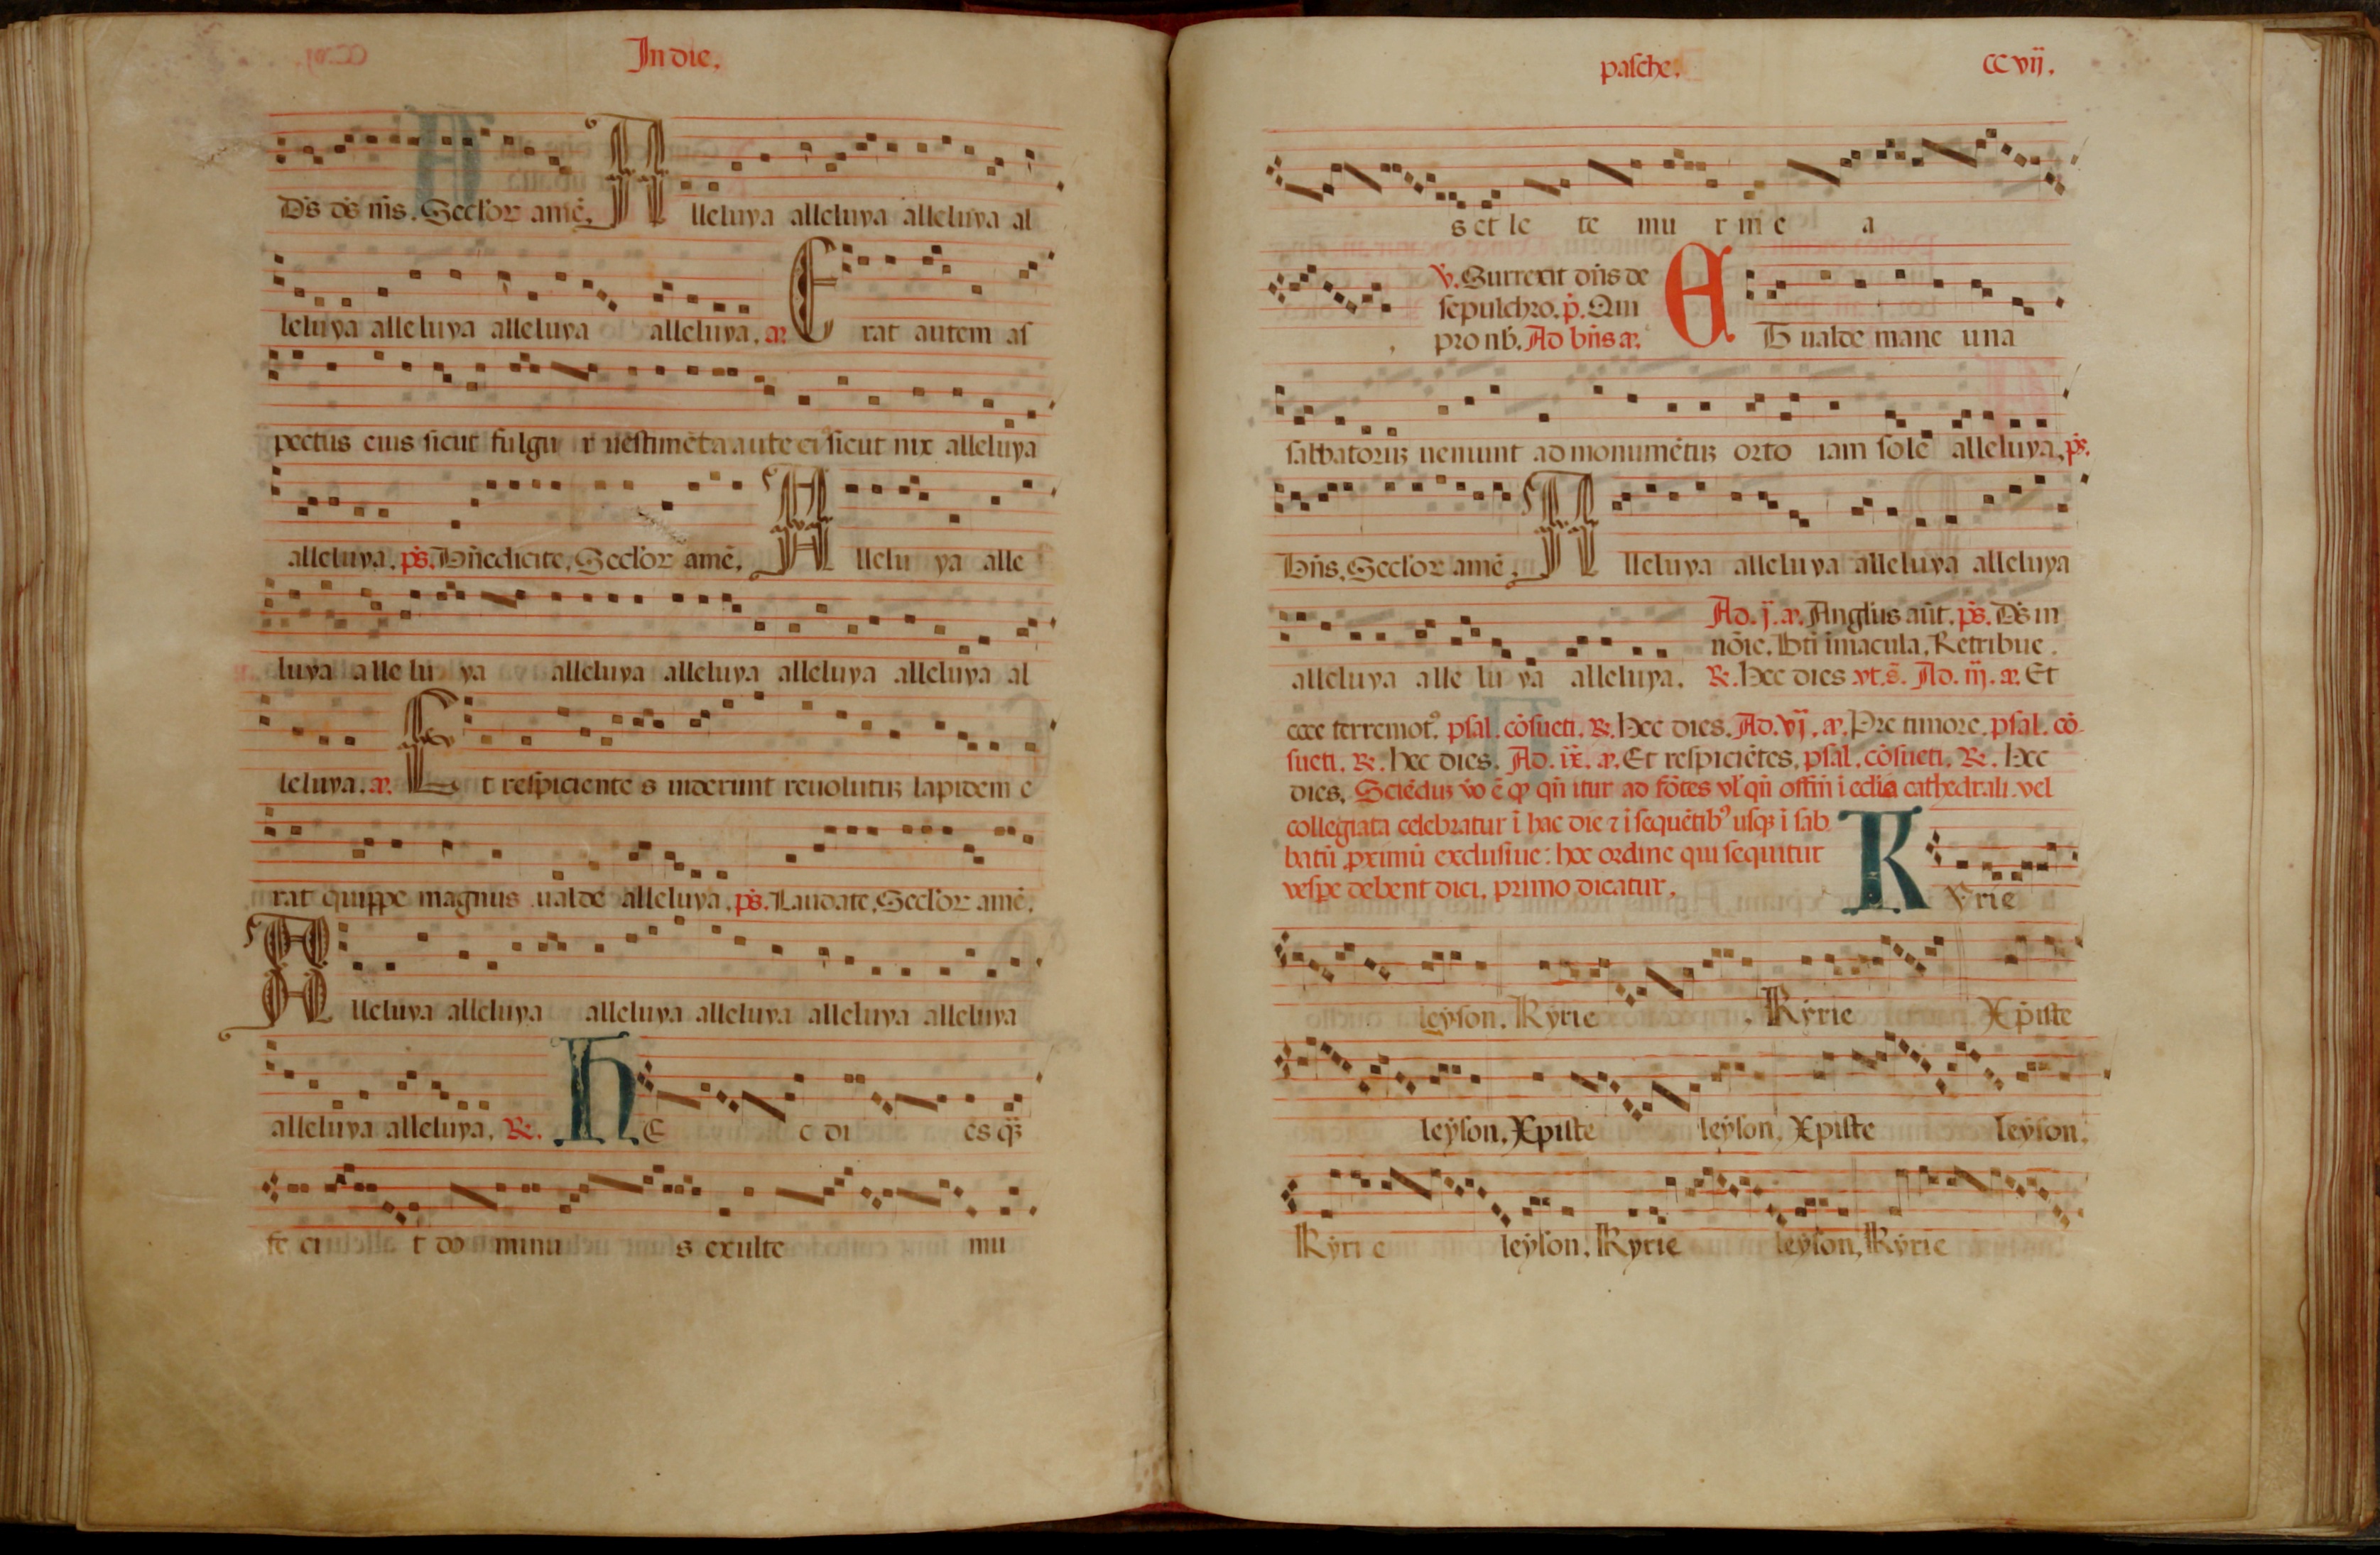 In die.
Ds ds ms. Seclor amē. Alleluya alleluya alleluya al
leluya alleluya alleluya alleluya. a. Erat autem as
pectus eius sicut fulgur uestimēta autē ei sicut nix alleluya
alleluya. ps. Bn̄edicite. Seclor amē. Allelu ya alle
luya alle lu ya alleluya alleluya alleluya alleluya al
leluya. a. Et respiciente s uiderunt reuolutuꝫ lapidem e
rat quippe magnus ualde alleluya. ps. Laudate. Seclor amē.
Alleluya alleluya alleluya alleluya alleluya alleluya
alleluya alleluya. ℞. He c di es qꝫ
fe ci t do minu s exulte mu
pasche. CCvij.
s et le te mu r in e a
℣. Surrexit dn̄s de
sepulchro. p̄. Qui
pro nb̄. Ad bn̄s a. Et ualde mane una
sabbatoruꝫ ueniunt ad monumētuꝫ orto iam sole alleluya. ps.
Bn̄s. Seclor amē. Alleluya alleluya alleluya alleluya
alleluya alle lu ya alleluya. Ad. j. a. Anglus aūt. ps. Ds in
nōie. Bti īmacula. Retribue.
℞. Hec dies vt. s̄. Ad. iij. a. Et
ecce terremotꝰ. psal. cōsueti. ℞. Hec dies. Ad. vj. a. Pre timore. psal. cō
sueti. ℞. Hec dies. Ad. ix. a. Et respiciētes. psal. cōsueti. ℞. Hec
dies. Sciēduꝫ vo ē qp qn̄ itur ad fōtes vl qn̄ offm̄ i eclia cathedrali vel
collegiata celebratur ī hac die ⁊ i sequētibꝰ usqꝫ i sab
batū proximū exclusiue: hoc ordine qui sequitur
vespe debent dici. primo dicatur. Kyrie
leyson. Kyrie Kyrie Xpiste
leyson. Xpiste leyson. Xpiste leyson.
Kyri e leyson. Kyrie leyson. Kyrie